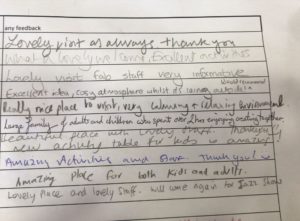 any feedback
Lovely visit as always, thank you
What a lovely welcome, Excellent activities
Lovely visit fab staff very informative
Would recommend
Excellent idea, cosy atmosphere whilst it's raining outside
Really nice place to visit, very calming & relaxing environment
Large family of adults and children who spent over 2hrs enjoying creating together,
Beautiful place with lovely staff. Thankyou
new activity table for kids is amazing!
Amazing Activities and Fun. Thank you!
Amazing place for both kids and adults.
Lovely Place and lovely staff. Will come again for Jazz Shows